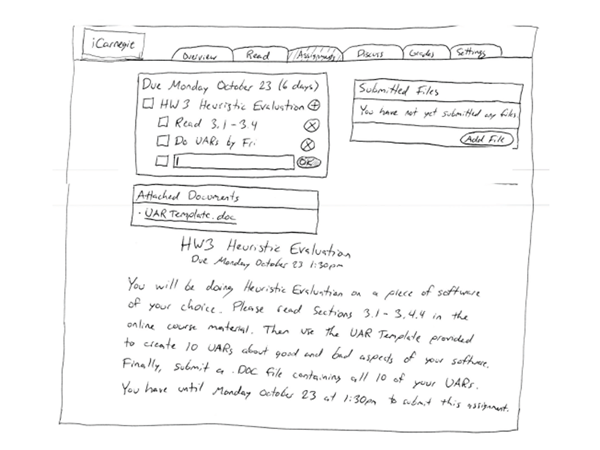 iCarnegie
Overview Read Assignments Discuss Grades Settings
Due Monday October 23 (6 days)
HW3 Heuristic Evaluation +
Read 3.1-3.4 X
Do UARs by Fri X
OK
Submitted Files
You have not yet submitted any files.
Add File
Attached Documents
- UAR Template.doc
HW3 Heuristic Evaluation
Due Monday October 23 1:30pm
You will be doing Heuristic Evaluation on a piece of software
of your choice. Please read Sections 3.1 - 3.4.4 in the
online course material. Then use the UAR Template provided
to create 10 UARs about good and bad aspects of your software.
Finally, submit a .DOC file containing all 10 of your UARs.
You have until Monday October 23 at 1:30pm to submit this assignment.